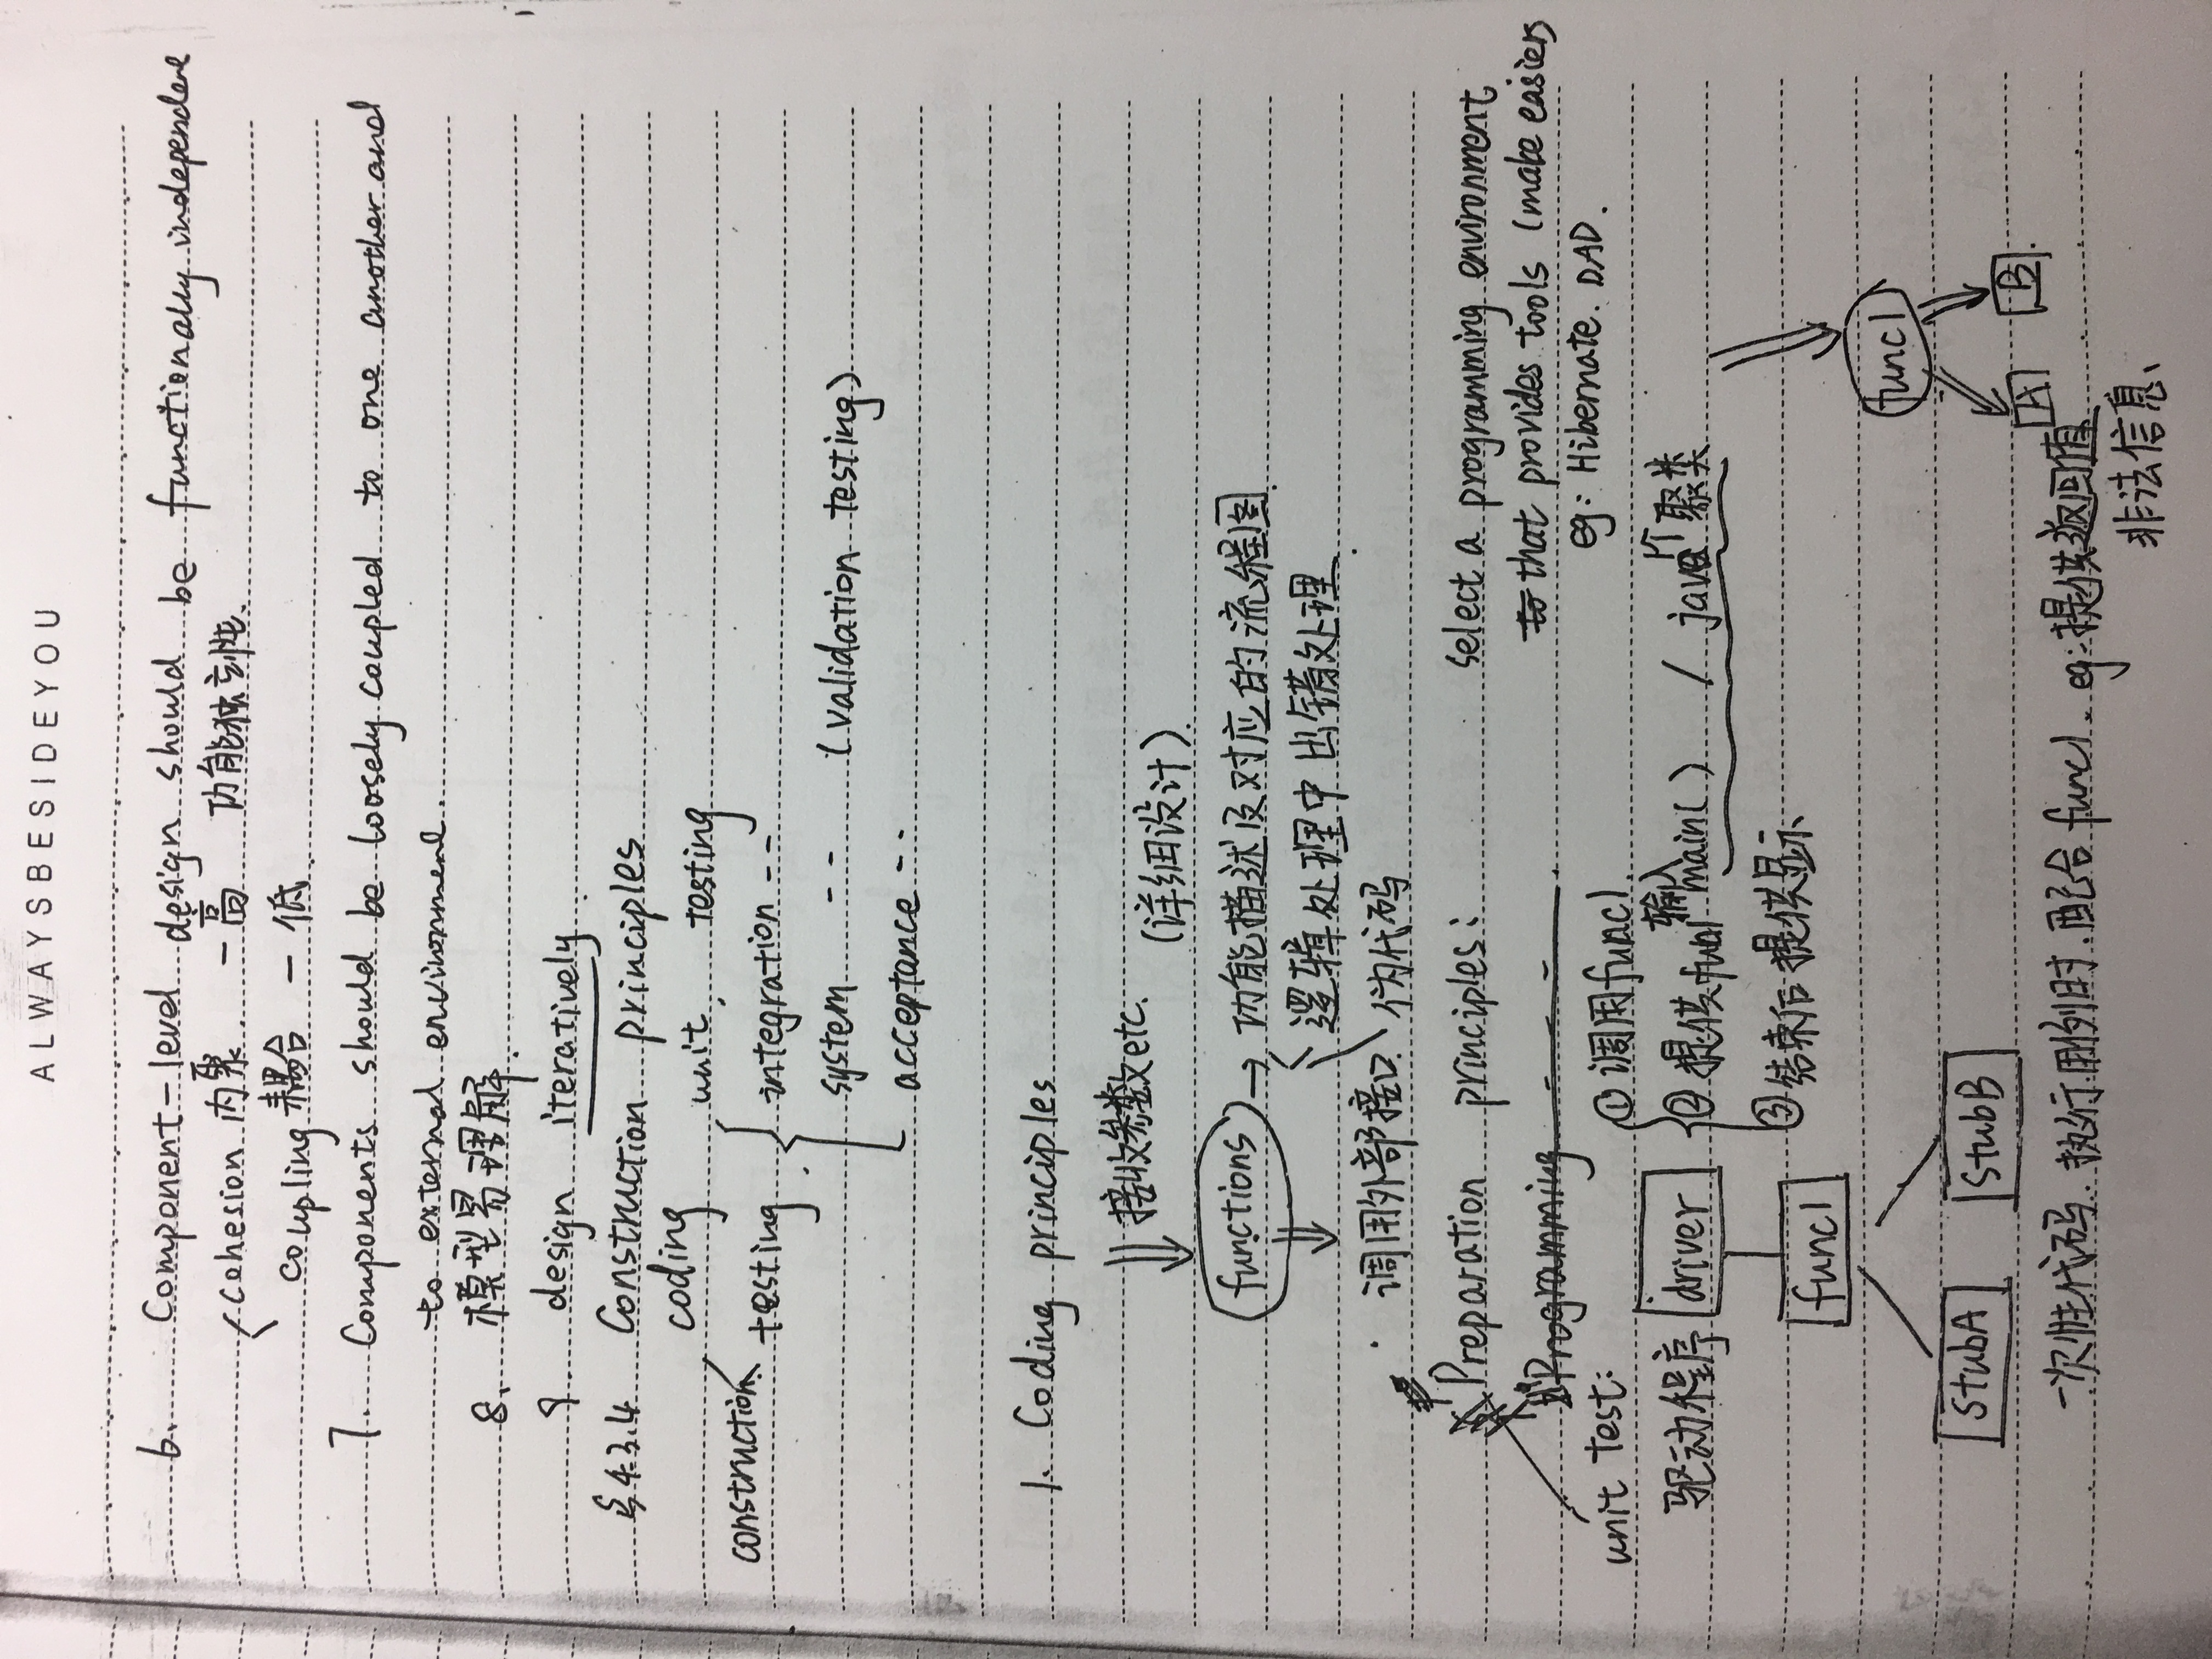 ALWAYSBESIDEYOU
6. Component-level design should be functionally independent
cohesion 内聚. - 高 功能独立性.
coupling 耦合 - 低.
7. Components should be loosely coupled to one another and
to external environment.
8. 模型易理解.
9. design iteratively.
§4.3.4 Construction principles
coding
unit testing
construction
testing
integration --
system -- (validation testing)
acceptance --
1. Coding principles
接收参数etc.
(详细设计).
functions → 功能描述及对应的流程图.
逻辑处理中出错处理.
调用外部接口. 伪代码
Preparation principles: select a programming environment
that provides tools (make easier)
Programming - - - .
eg: Hibernate. DAD.
unit test:
① 调用func1.
驱动程序 driver
② 提供fun1输入 main( ) / java 聚类
③ 结束后提供显示
func1
func1
stubA stubB
A B.
一次性代码. 执行用例时.配合func1. eg:提供返回值
非法信息、